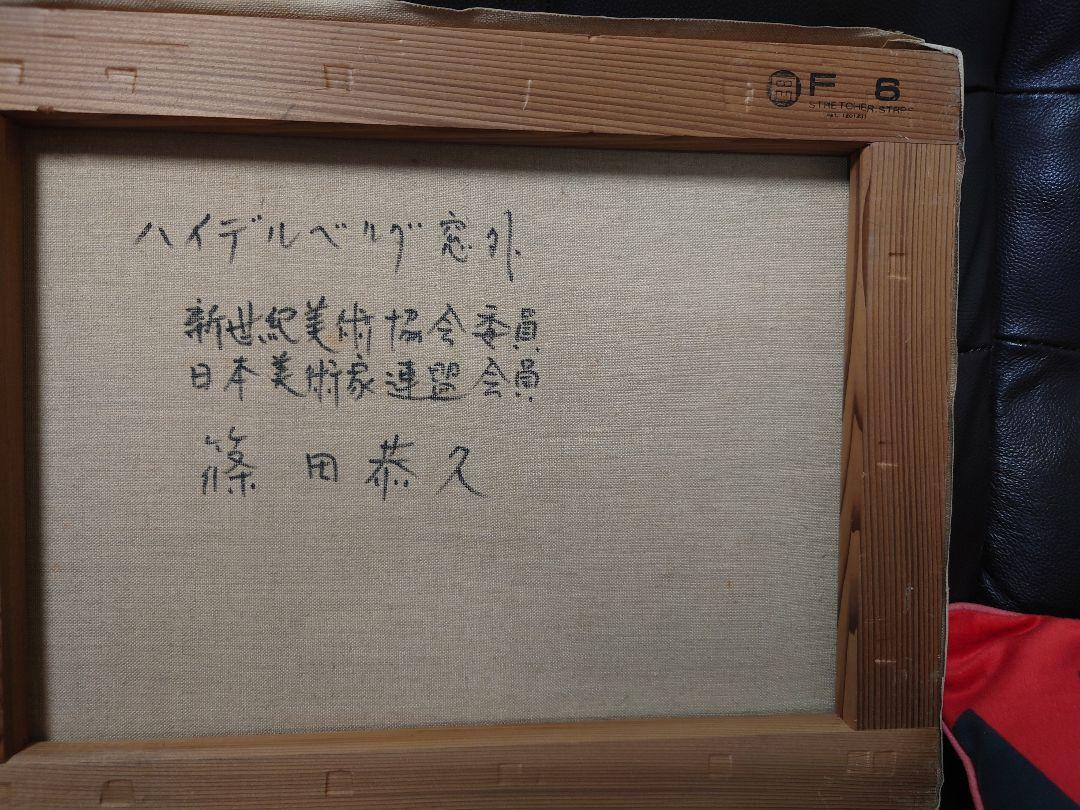 F 6
STRETCHER.STRPS
ハイデルベルグ窓外
新世紀美術協会委員
日本美術家連盟会員
篠田恭久